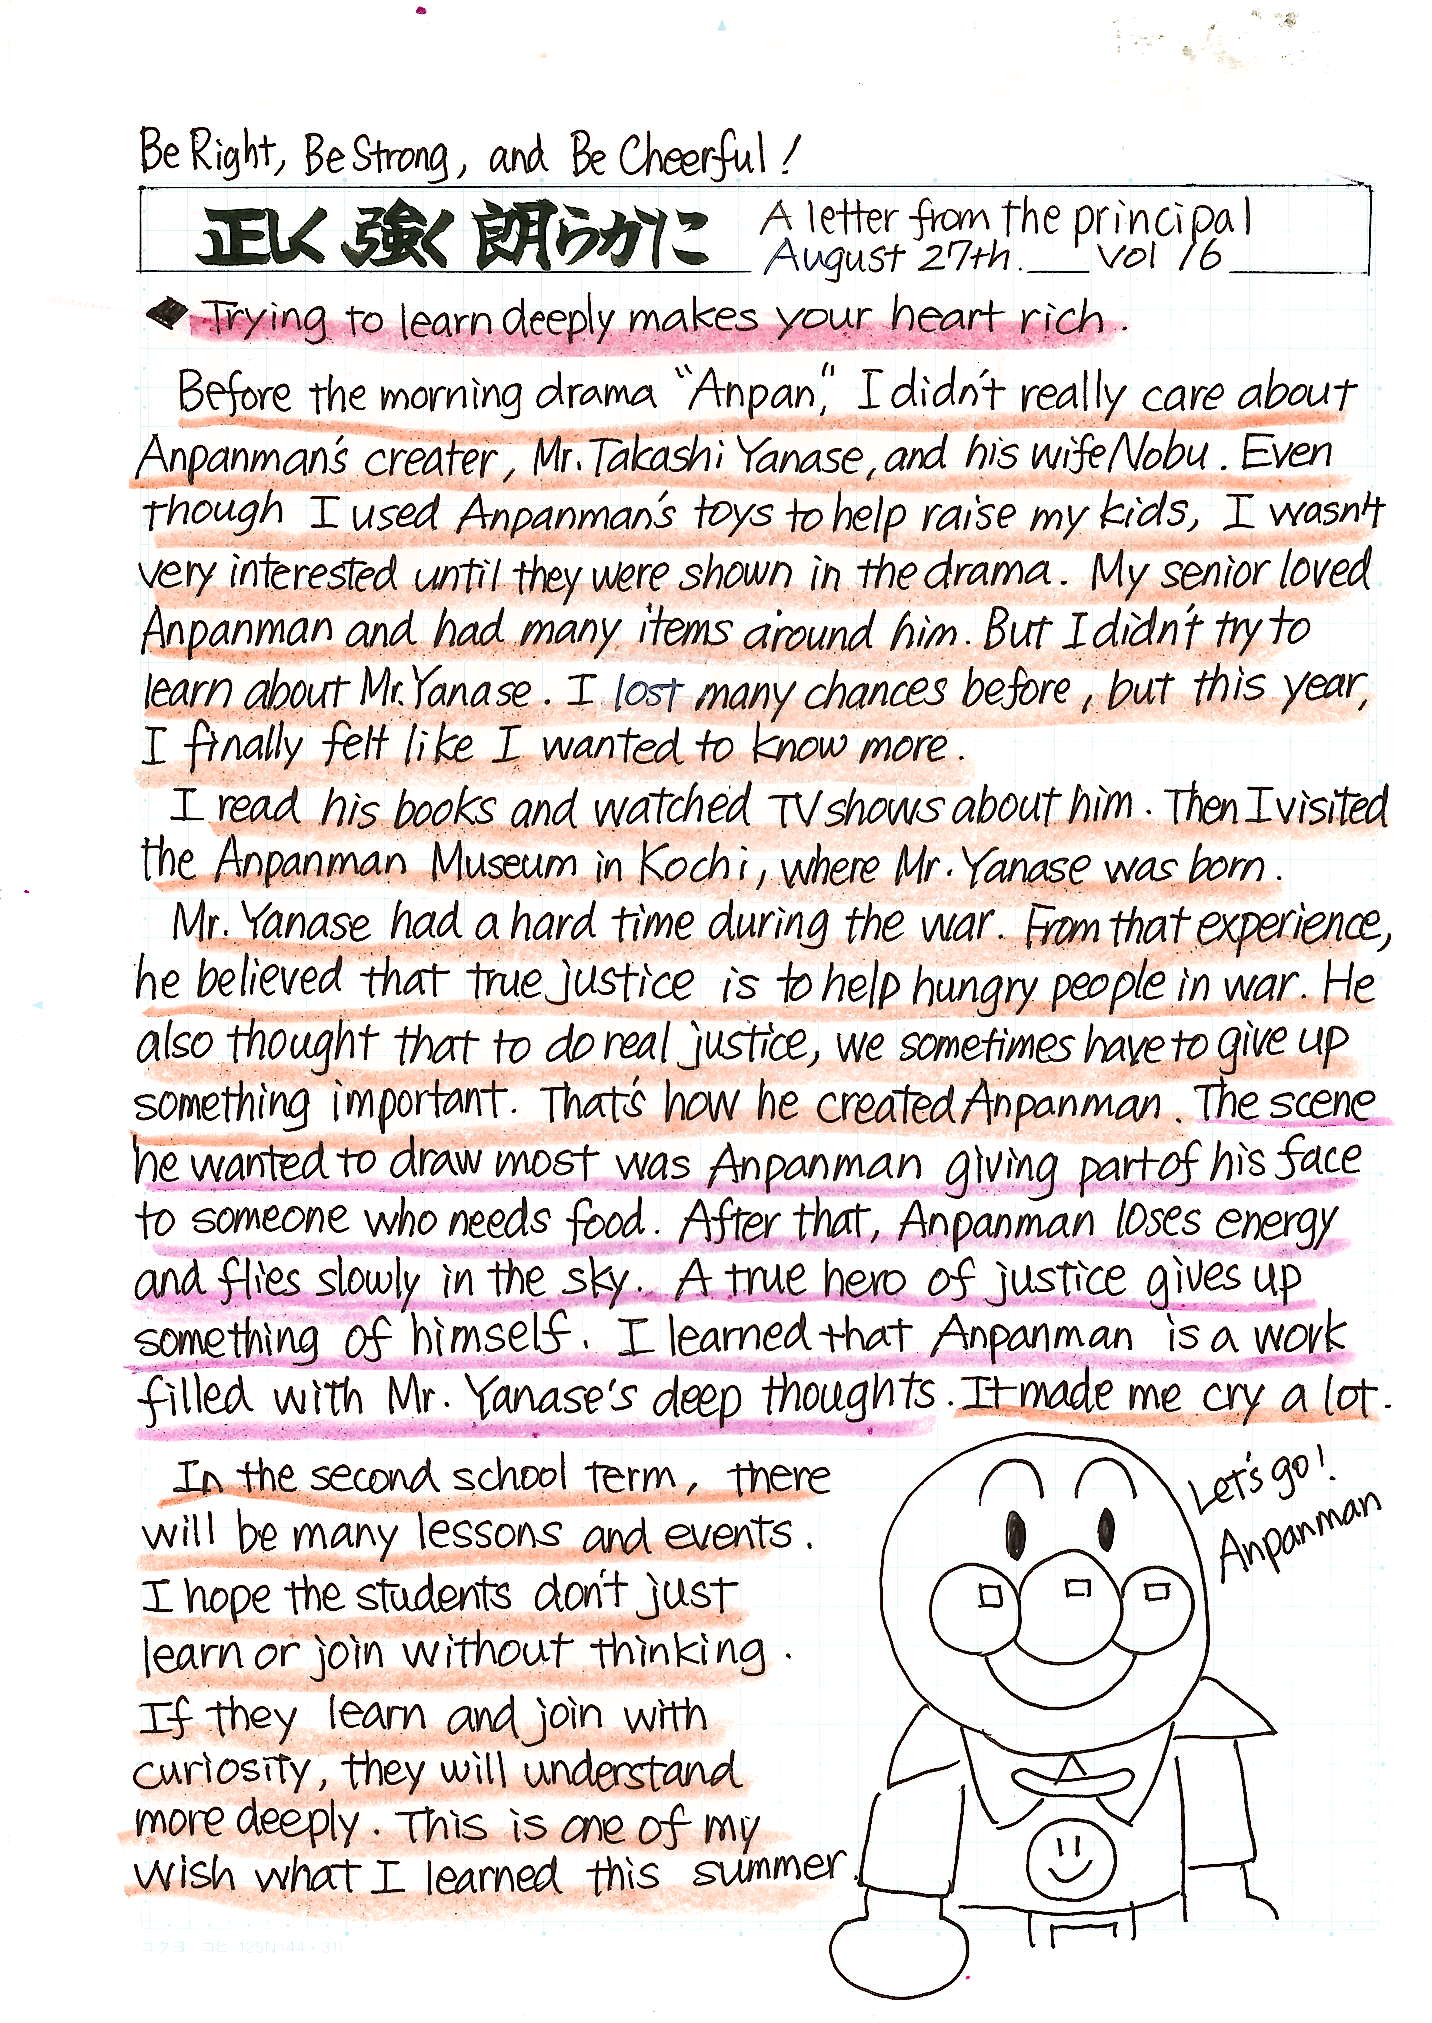 Be Right, Be Strong, and Be Cheerful!
正しく 強く 朗らかに
A letter from the principal
August 27th. vol 16
◆ Trying to learn deeply makes your heart rich.
Before the morning drama "Anpan," I didn't really care about
Anpanman's creater, Mr. Takashi Yanase, and his wife Nobu. Even
though I used Anpanman's toys to help raise my kids, I wasn't
very interested until they were shown in the drama. My senior loved
Anpanman and had many items around him. But I didn't try to
learn about Mr. Yanase. I lost many chances before, but this year,
I finally felt like I wanted to know more.
I read his books and watched TV shows about him. Then I visited
the Anpanman Museum in Kochi, where Mr. Yanase was born.
Mr. Yanase had a hard time during the war. From that experience,
he believed that true justice is to help hungry people in war. He
also thought that to do real justice, we sometimes have to give up
something important. That's how he created Anpanman. The scene
he wanted to draw most was Anpanman giving part of his face
to someone who needs food. After that, Anpanman loses energy
and flies slowly in the sky. A true hero of justice gives up
something of himself. I learned that Anpanman is a work
filled with Mr. Yanase's deep thoughts. It made me cry a lot.
In the second school term, there
will be many lessons and events.
I hope the students don't just
learn or join without thinking.
If they learn and join with
curiosity, they will understand
more deeply. This is one of my
wish what I learned this summer.
Let's go!
Anpanman